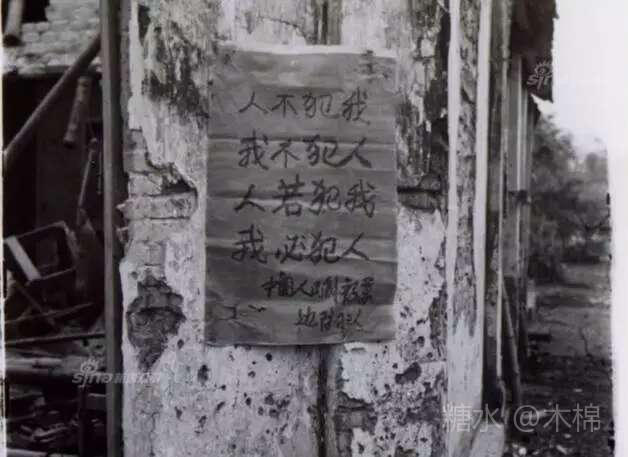 人不犯我
我不犯人
人若犯我
我必犯人
中国人民解放军
边防部队
sina
sina
糖水 @木棉